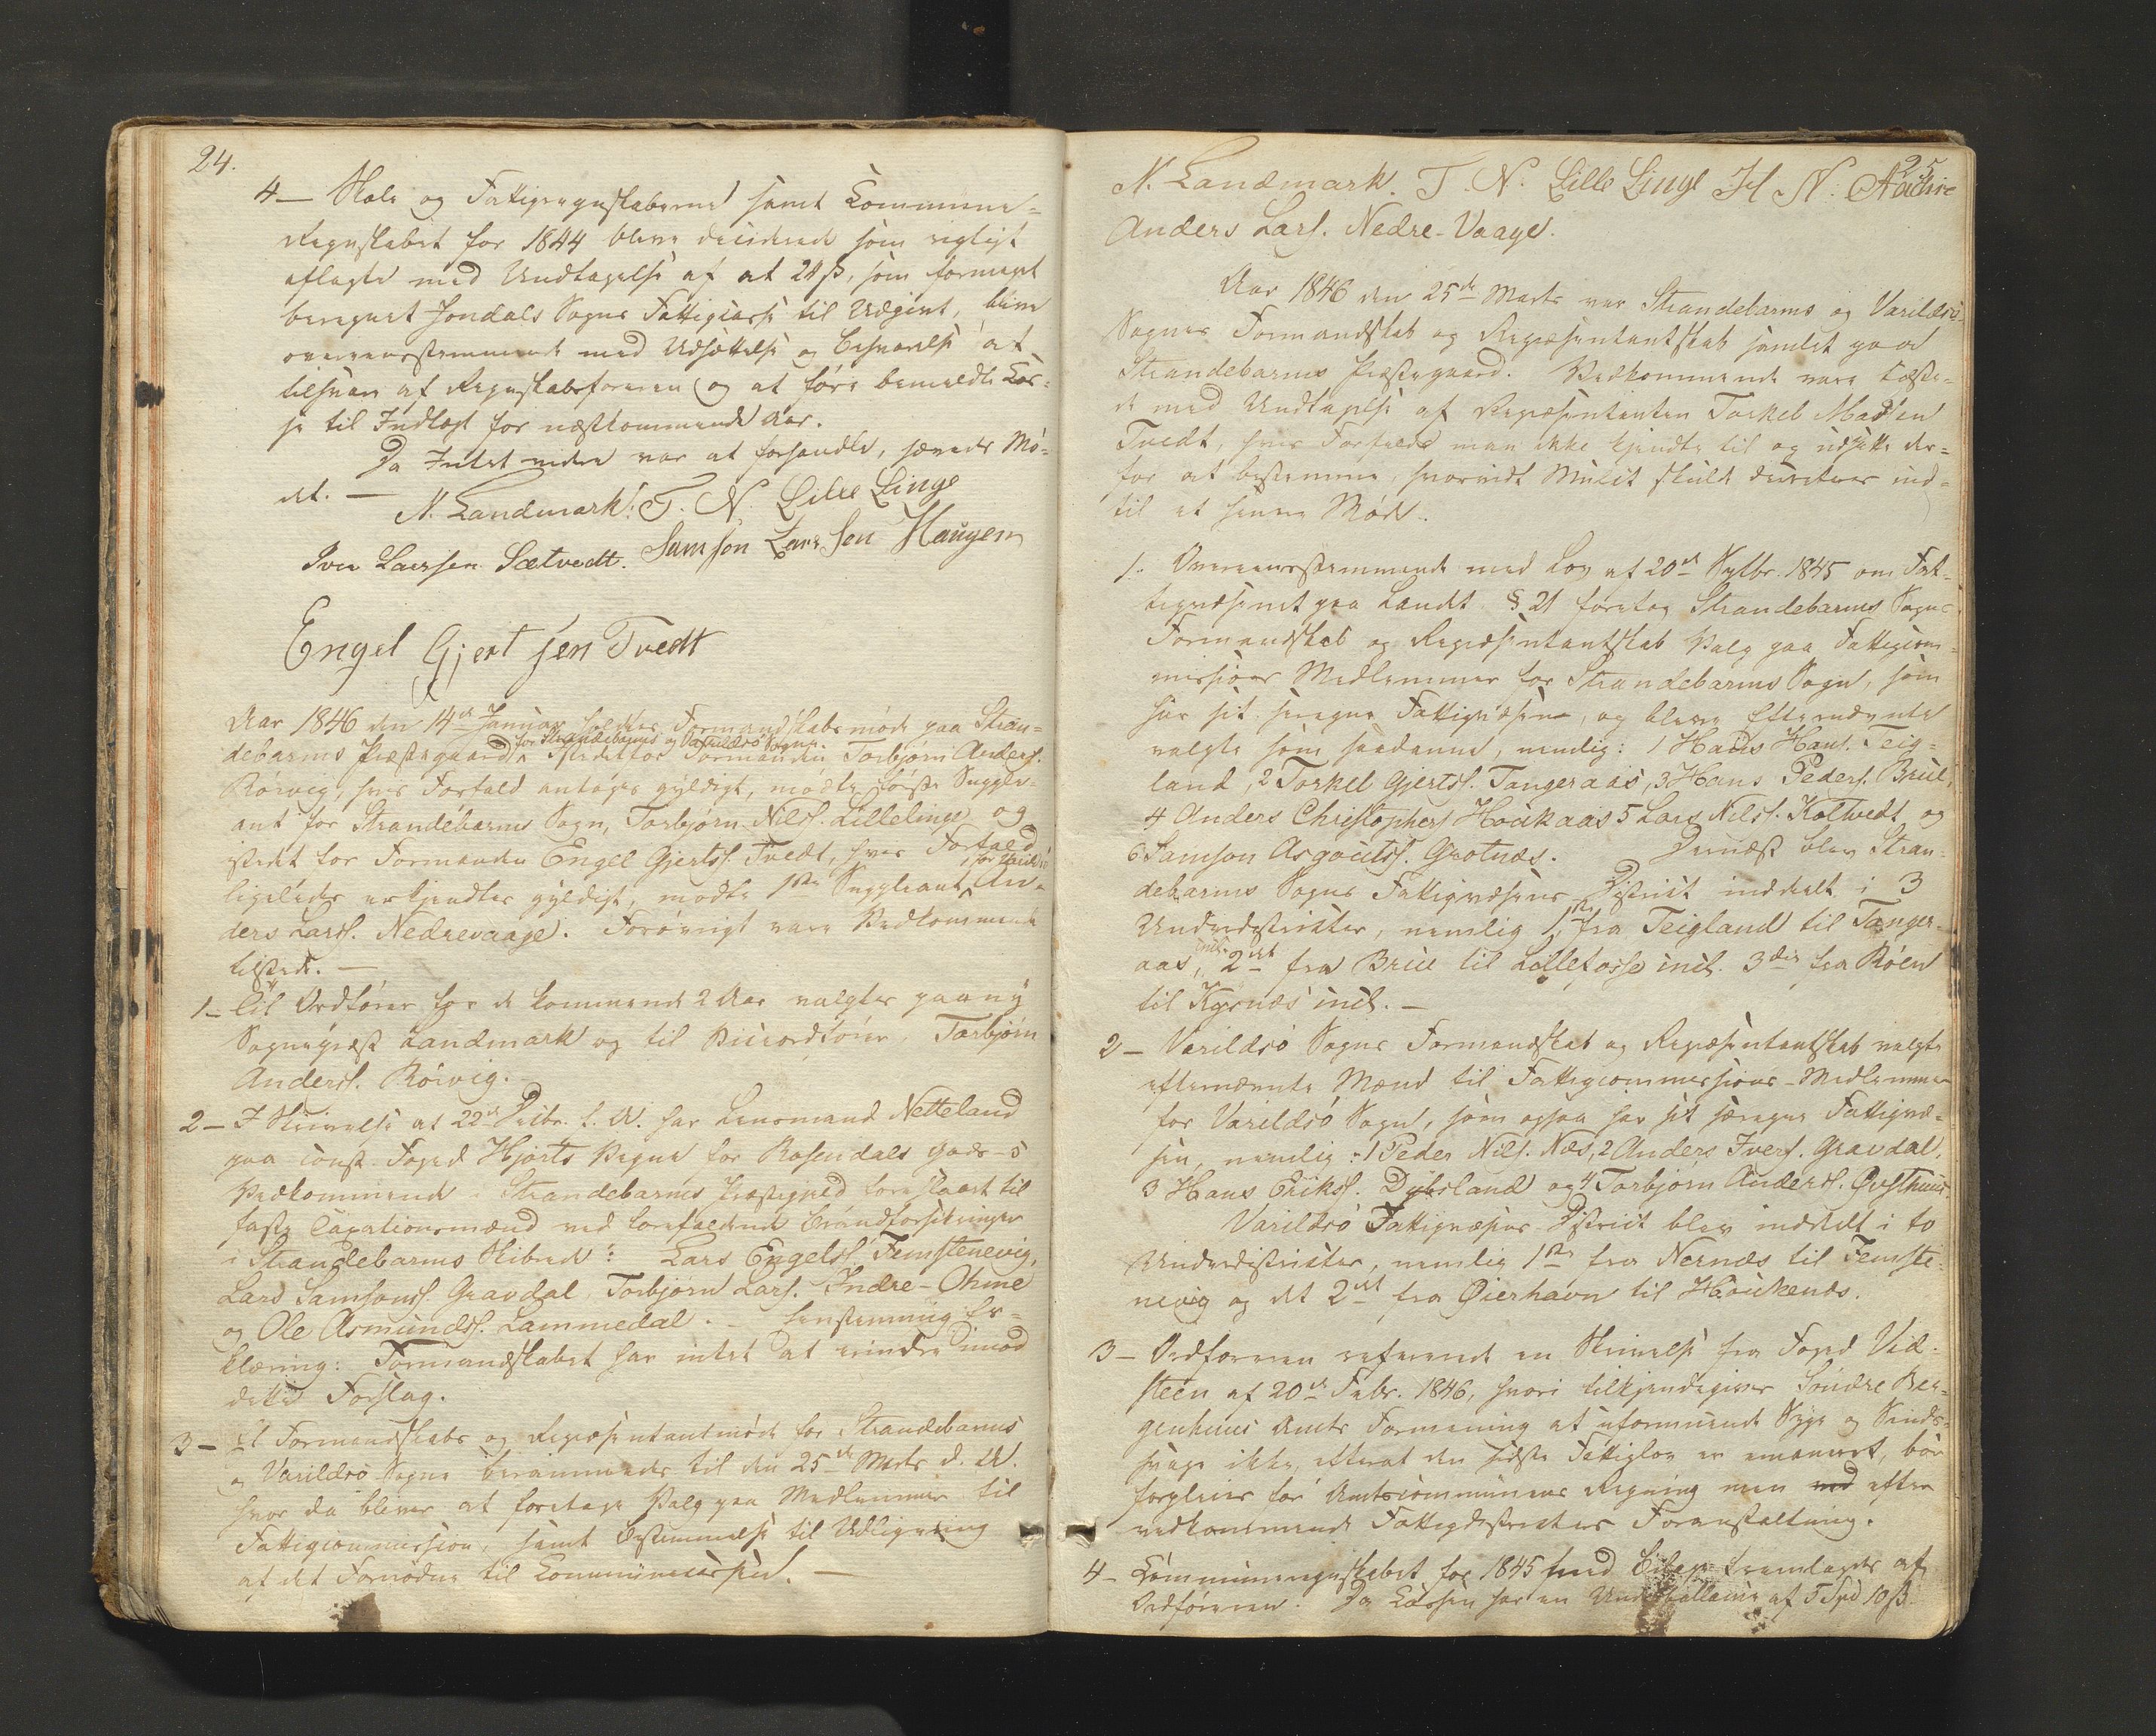 24.
4 — Skole og Fattigregnskaberne samt Commune-
Regnskabet for 1844 bleve deciderede som rigtigt
aflagte med Undtagelse af at 24 ß, som formeget
beregnet Jondals Sogns Fattigcasse til Udgivt, blive
overensstemmende med Udsættelse og Besvarelse at
tilsvare af Regnskabsføreren og at føre bemeldte Cas-
se til Indtægt for næstkommende Aar.
Da Intet videre var at forhandle, hævedes Mø-
det. —
N. Landmark. T. N. Lille Linge
Iver Larssen Sætvedt. Samson Larssen Haugen
Engel Gjertsen Tvedt
Aar 1846 den 14de Januar holdtes Formandskabsmøde paa Stran-
for Strandebarms og Varildsø Sogne.
debarms Præstegaard. Istedetfor Formanden Torbjørn Anders.
Rørvig, hvis Forfald antages gyldigt, mødte første Supple-
ant for Strandebarms Sogn, Torbjørn Nilss. Lillelinge og
istedet for Formanden Engel Gjertss. Tvedt, hvis Forfald
for Varildsø
ligeledes erkjendtes gyldigt, mødte 1ste Suppleant An-
ders Larss. Nedrevaage. Forøvrigt vare Vedkommende
tilstede. —
1 — Til Ordfører for de kommende 2 Aar valgtes paa ny
Sognepræst Landmark og til Viceordfører, Torbjørn
Anderss. Rørvig.
2 — I Skrivelse af 22de Decbr. f. A. har Lensmand Netteland
paa const. Foged Hjorts Vegne for Rosendals Gods
Vedkommende i Strandebarms Præstegjeld foreslaaet til
faste Taxationsmænd ved forefaldende Brandforsikringer
i Strandebarms Skibrede: Lars Engelss. Femstenevig,
Lars Samsonss. Gravdal, Torbjørn Lars. Indre-Ohme
og Ole Asmundss. Lammedal. — Eenstemmig Er-
klæring: Formandskabet har intet at erindre imod
dette Forslag.
3 — Et Formandskabs og Repræsentantmøde for Strandebarms
og Varildsø Sogne berammedes til den 25de Marts d. A.
hvor da bliver at foretage Valg paa Medlemmer til
Fattigcommission, samt Bestemmelse til Udligning
af det Fornødne til Communecassen. —
25
N. Landmark. T. N. Lille Linge H N: Aachre
Anders Lars. Nedre-Vaage.
Aar 1846 den 25de Marts var Strandebarms og Varildsø
Sognes Formandskab og Repræsentantskab samlet paa
Strandebarms Præstegaard. Vedkommende vare tilste-
de med Undtagelse af Repræsentanten Torkel Madsen
Tvedt, hvis Forfald man ikke kjendte til og udsatte der-
for at bestemme, hvorvidt Mulct skulde dicteres ind-
til et senere Møde.
1. Overensstemmende med Lov af 20de Septbr. 1845 om Fat-
tigvæsenet paa Landet § 21 foretog Strandebarms Sogns
Formandskab og Repræsentantskab Valg paa Fattigcom-
missions Medlemmer for Strandebarms Sogn, som
har sit særegne Fattigvæsen, og bleve Efternævnte
valgte som saadanne, nemlig: 1 Hans Hans. Teig-
land, 2 Torkel Gjertss. Tangeraas, 3 Hans Peders. Brue,
4 Anders Christophers Houkaas 5 Lars Nilss. Koltvedt og
6 Samson Asgoutss. Grotnæs. Dernæst blev Stran-
debarms Sogns Fattigvæsens District inddelt i 3
Underdistricter, nemlig 1ste fra Teigland til Tanger-
incl.
aas, 2det fra Brue til Lillefosse incl. 3die fra Røen
til Kysnæs incl. —
2 — Varildsø Sogns Formandskab og Repræsentantskab valgte
efternævnte Mænd til Fattigcommissions-Medlemmer
for Varildsø Sogn, som ogsaa har sit særegne Fattigvæ-
sen, nemlig: 1 Peder Nils. Næs, 2 Anders Ivers. Gravdal,
3 Hans Erikss. Dybsland og 4 Torbjørn Anderss. Øvsthuus.
Varildsø Fattigvæsens District blev inddelt i to
Underdistricter, nemlig 1ste fra Nernæs til Femste-
nevig og det 2det fra Øierhavn til Houkenæs.
3 — Ordføreren refererede en Skrivelse fra Foged Vid-
steen af 20de Febr. 1846, hvori tilkjendegives Søndre Ber-
genhuus Amts Formening at uformuende Syge og Sinds-
svage ikke, efterat den sidste Fattiglov er emaneret, bør
forpleies for Amtscommunens Regning men efter
vedkommende Fattigdistricters Foranstaltning.
4 — Communeregnskabet for 1845 med Bilag fremlagdes af
Ordføreren. Da Cassen har en Underballance af 5 Spd 10 ß.